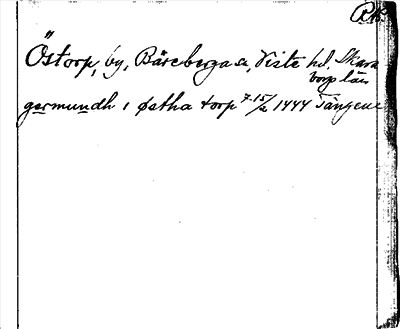 RK.
Östorp, by, Bäreberga sn, Viste hd, Skara
borgs län
germundh i østha torp 7 15/2 1444 Tängene